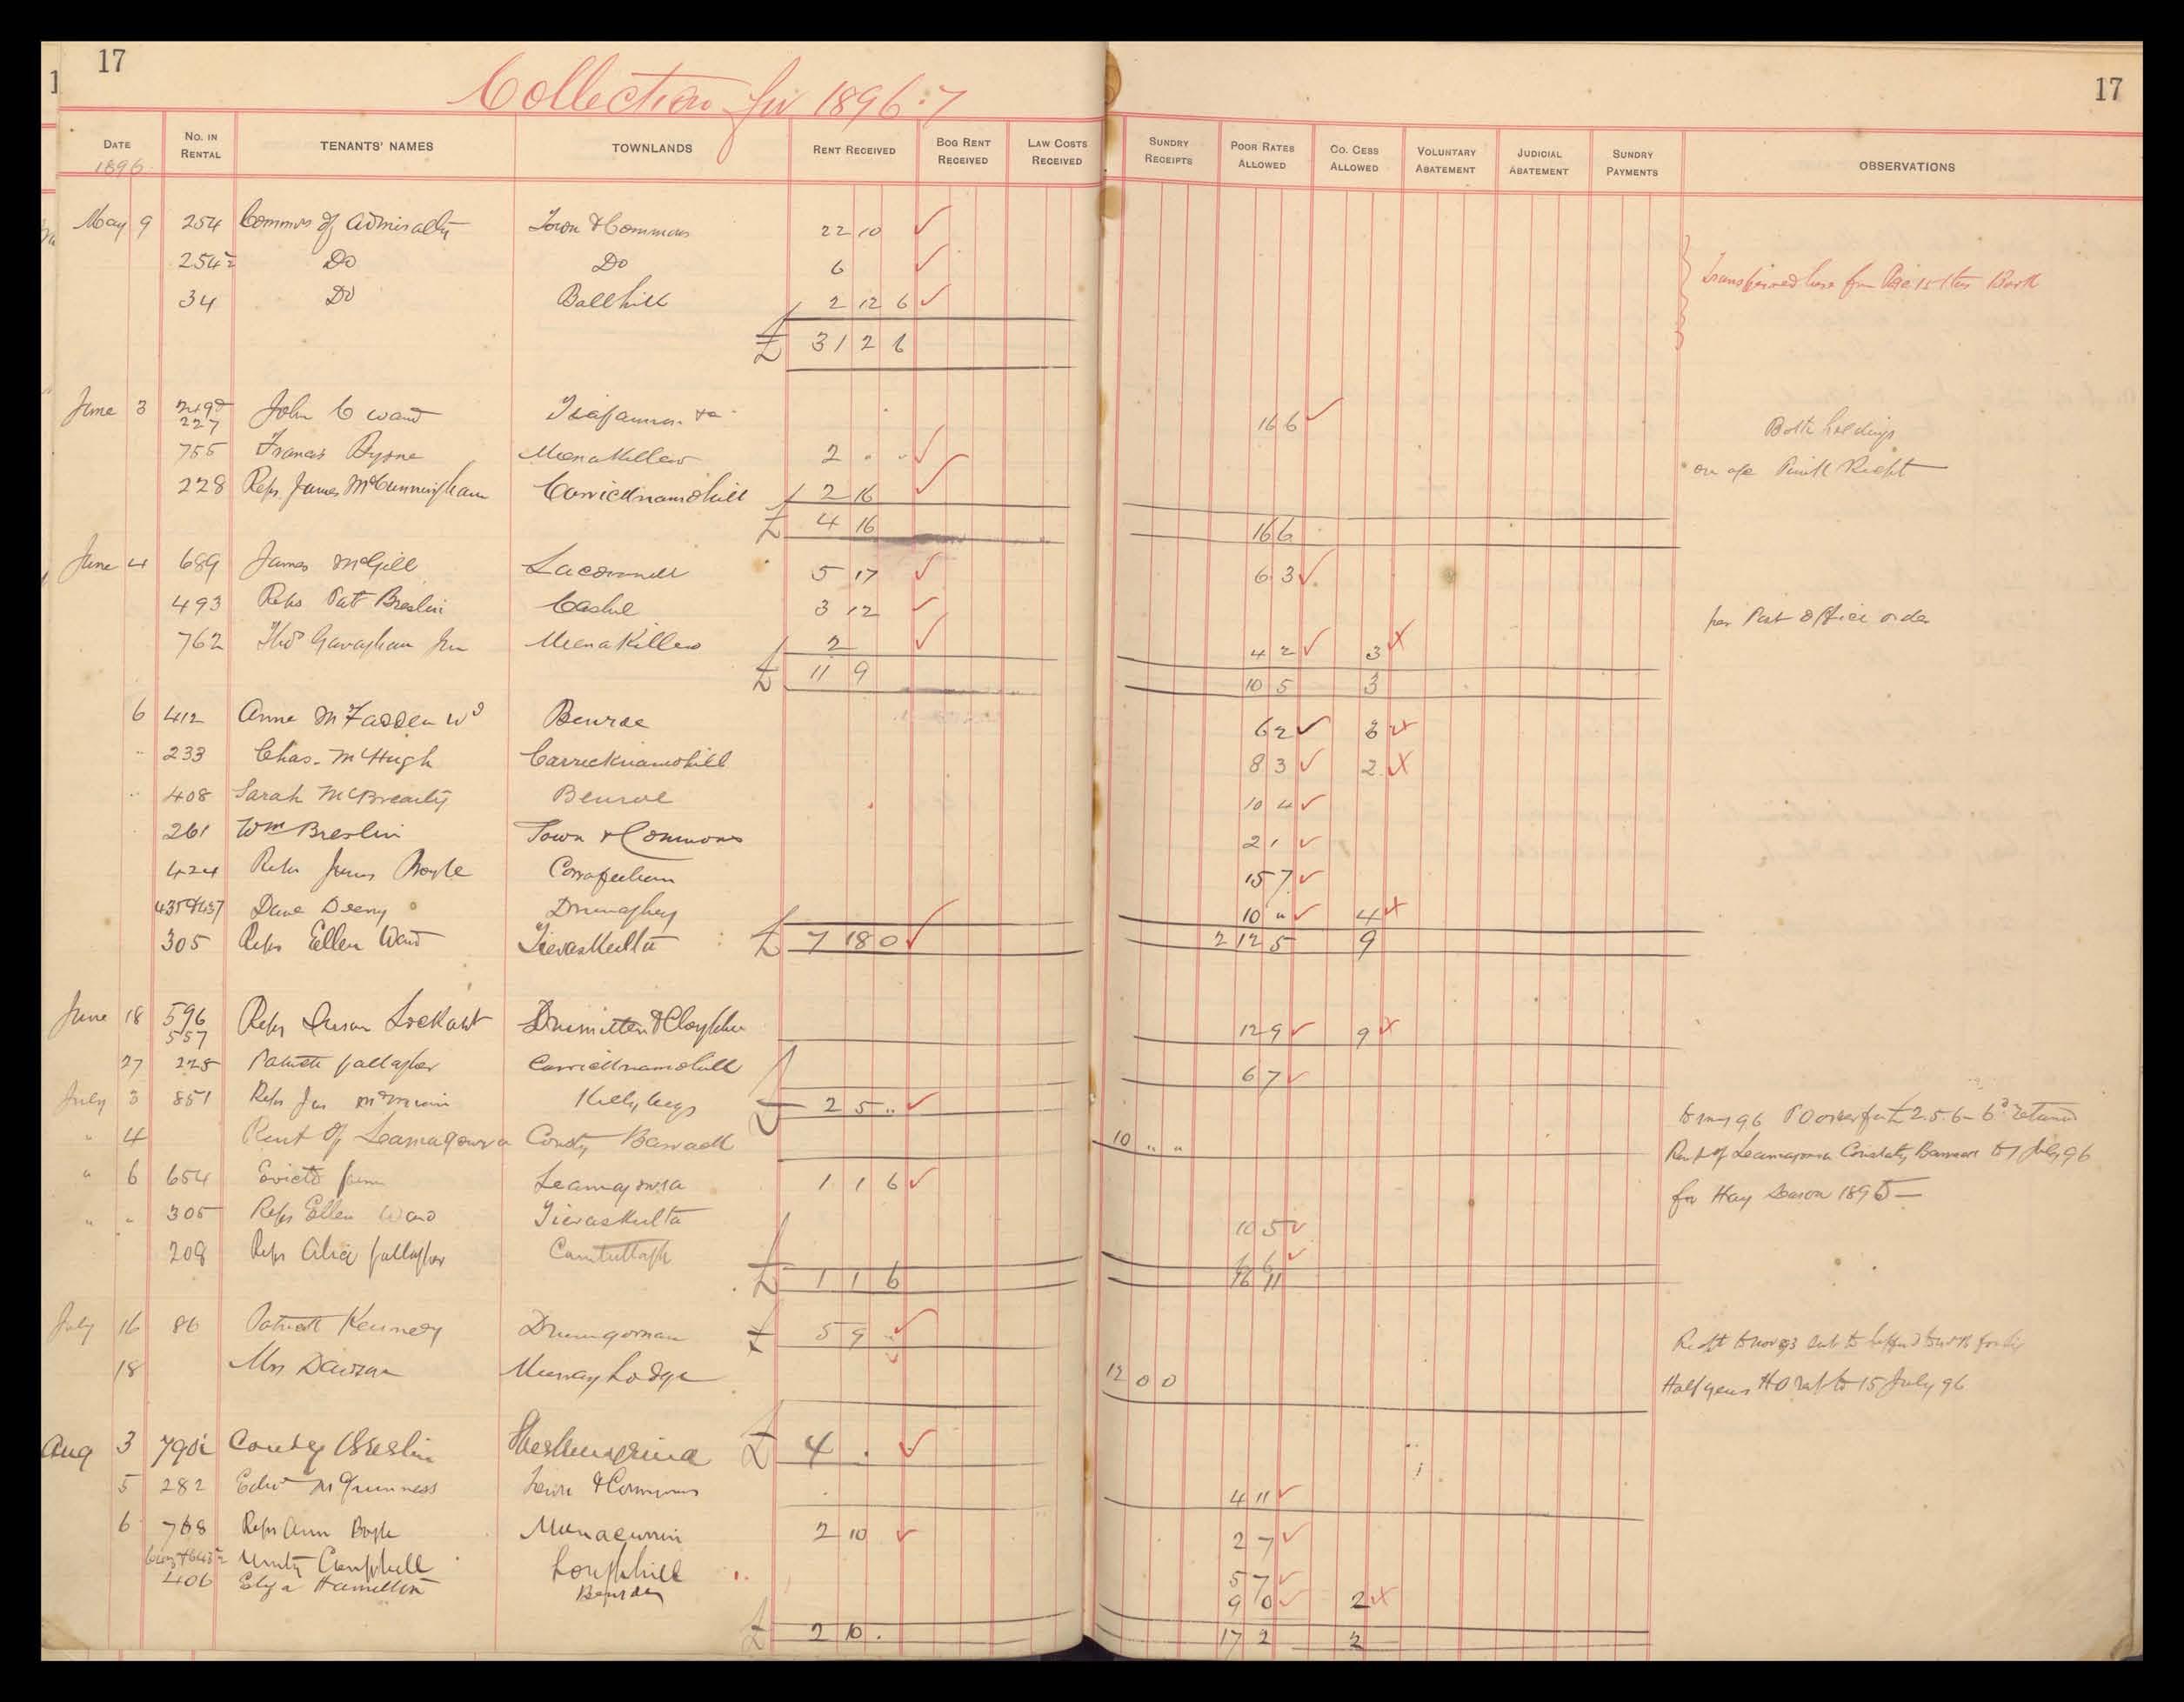 17
Collection for 1896.7
17
DATE No. IN RENTAL TENANTS' NAMES TOWNLANDS RENT RECEIVED BOG RENT RECEIVED LAW COSTS RECEIVED SUNDRY RECEIPTS POOR RATES ALLOWED CO. CESS ALLOWED VOLUNTARY ABATEMENT JUDICIAL ABATEMENT SUNDRY PAYMENTS OBSERVATIONS
1896
May 9 254 Commrs of Admiralty Town & Commons 22 10 ✓
254½ Do Do 6 ✓
34 Do Ballhill 2 12 6 ✓
£ 31 2 6
June 3 227 John C Ward 16 6 ✓ Both holdings
755 Francis Byrne Meenakillew 2 . . ✓
228 Reps James McCunningham Carricknamohill 2 16 ✓
£ 4 16 16 6
June 4 689 James McGill Laconnell 5 17 ✓ 6 3 ✓
493 Reps Pat Breslin Cashel 3 12 ✓ per Post Office order
762 Thos Gavaghan Jun Meenakillew 2 ✓ 4 2 ✓ 3 X
£ 11 9 10 5 3
6 412 Anne McFadden Wd Benroe 6 2 ✓ 3 X
" 233 Chas. McHugh Carricknamohill 8 3 ✓ 2 X
" 408 Sarah McBrearty Benroe 10 4 ✓
261 Wm Breslin Town & Commons 2 1 ✓
424 Reps James Boyle 15 7 ✓
435 & 437 Deery Drumaghey 10 " ✓ 4 X
305 Reps Ellen Ward Tievaskeelta £ 7 18 0 ✓ 2 12 5 9
June 18 596 557 Reps Susan Lockart 12 9 ✓ 9 X
27 225 Patrick Gallagher Carricknamohill 6 7 ✓
July 3 851 Reps Jas Killybegs £ 2 5 .. ✓
" 4 Rent of Leamagowra Consty Barrack 10 " " Rent of Leamagowra Constaby Barrack to 1 July 96
" 6 654 Evictd farm Leamagowra 1 1 6 ✓ for Hay Season 1895
" " 305 Reps Ellen Ward Tievaskeelta 10 5 ✓
209 Reps Alice Gallagher 6 6 ✓
£ 1 1 6 16 11
July 16 86 Patrick Kennedy Drumgorman £ 5 9 .. ✓
18 Mrs Dawson Murray Lodge 12 0 0 Half years H O Rent to 15 July 96
Aug 3 Breslin £ 4 . ✓
5 282 Edwd McGuinness Town & Commons 4 11 ✓
6 768 Reps Ann Boyle Meenacurrin 2 10 ✓ 2 7 ✓
Unity Campbell Loughhill 5 7 ✓
406 Eliza Hamilton Benroe 9 0 ✓ 2 X
£ 2 10 . 17 2 2